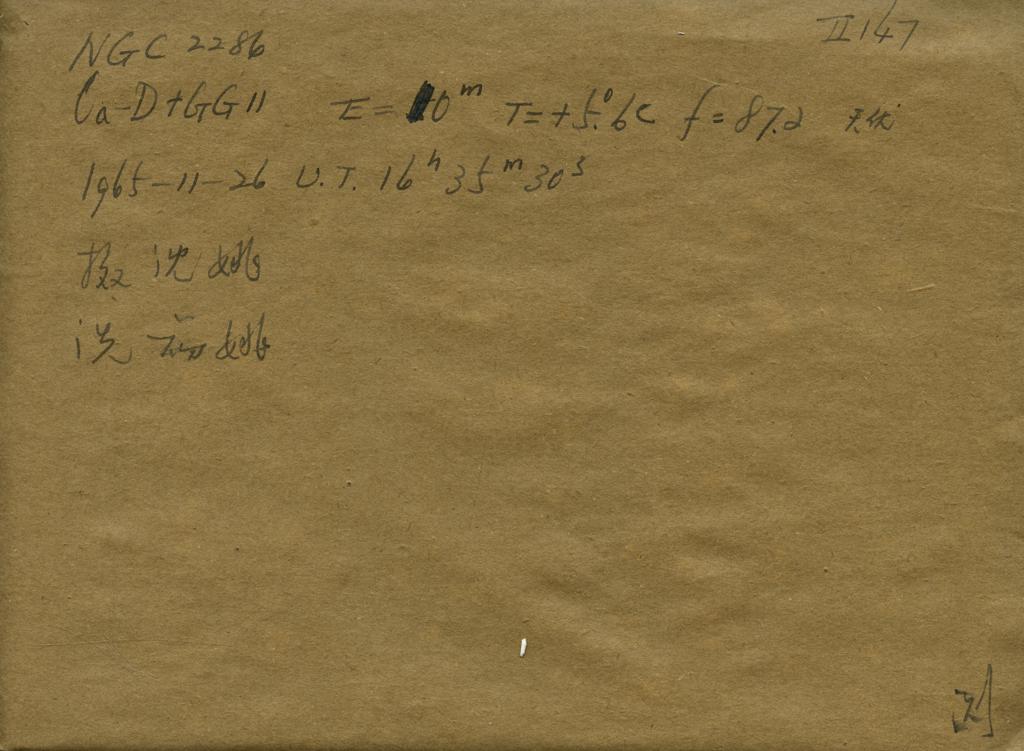 II 147
NGC 2286
Ca-D+GG11 E=10ᵐ T=+5.°6C f=87.2
1965-11-26 U.T. 16ʰ35ᵐ30ˢ
摄 沈 姚
洗 姚